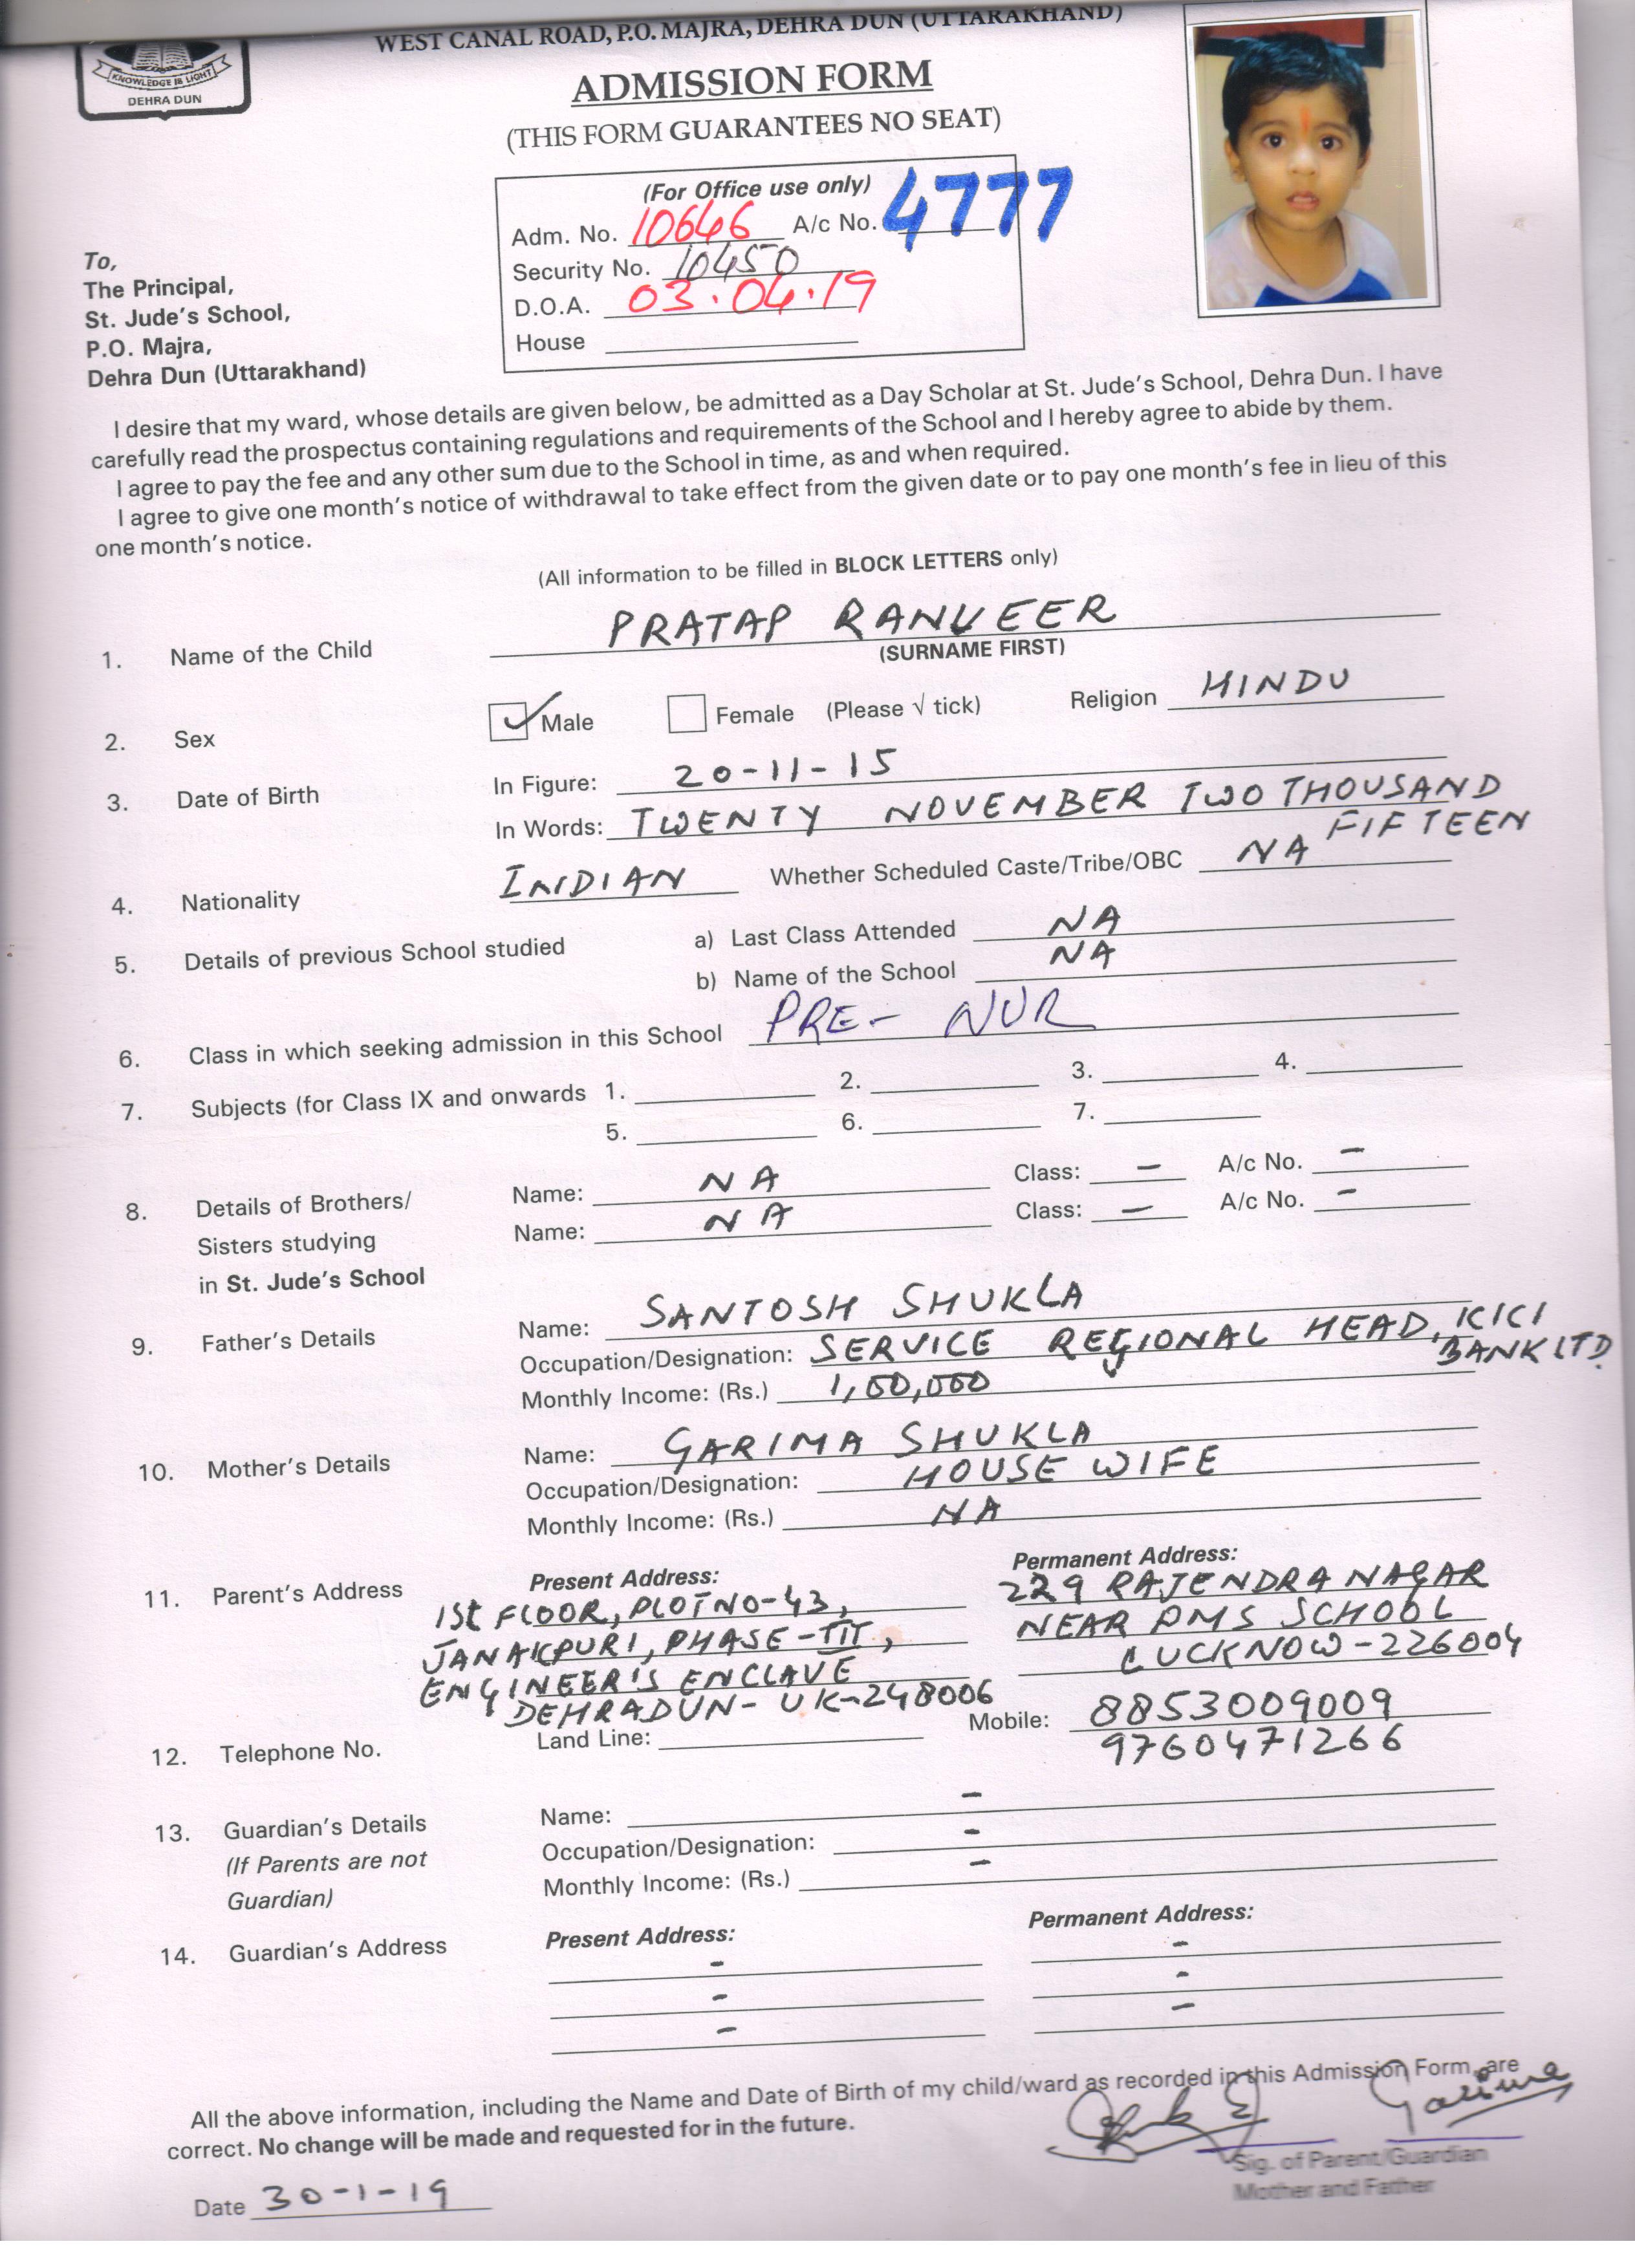 WEST CANAL ROAD, P.O. MAJRA, DEHRA DUN (UTTARAKHAND)
KNOWLEDGE IS LIGHT
DEHRA DUN
ADMISSION FORM
(THIS FORM GUARANTEES NO SEAT)
(For Office use only)
Adm. No. 10646 A/c No. 4777
Security No. 10450
D.O.A. 03.04.19
House
To,
The Principal,
St. Jude's School,
P.O. Majra,
Dehra Dun (Uttarakhand)
I desire that my ward, whose details are given below, be admitted as a Day Scholar at St. Jude's School, Dehra Dun. I have
carefully read the prospectus containing regulations and requirements of the School and I hereby agree to abide by them.
I agree to pay the fee and any other sum due to the School in time, as and when required.
I agree to give one month's notice of withdrawal to take effect from the given date or to pay one month's fee in lieu of this
one month's notice.
(All information to be filled in BLOCK LETTERS only)
1. Name of the Child PRATAP RANVEER
(SURNAME FIRST)
2. Sex Male Female (Please √ tick) Religion HINDU
3. Date of Birth In Figure: 20-11-15
In Words: TWENTY NOVEMBER TWO THOUSAND
FIFTEEN
4. Nationality INDIAN Whether Scheduled Caste/Tribe/OBC NA
5. Details of previous School studied a) Last Class Attended NA
b) Name of the School NA
6. Class in which seeking admission in this School PRE- NUR
7. Subjects (for Class IX and onwards 1. 2. 3. 4.
5. 6. 7.
8. Details of Brothers/ Name: NA Class: - A/c No. -
Sisters studying Name: NA Class: - A/c No. -
in St. Jude's School
9. Father's Details Name: SANTOSH SHUKLA
Occupation/Designation: SERVICE REGIONAL HEAD, ICICI
BANK LTD.
Monthly Income: (Rs.)
10. Mother's Details Name: GARIMA SHUKLA
Occupation/Designation: HOUSE WIFE
Monthly Income: (Rs.) NA
11. Parent's Address Present Address: Permanent Address:
1St FLOOR, PLOT NO-43, 229 RAJENDRA NAGAR
JANAKPURI, PHASE-III, NEAR DMS SCHOOL
ENGINEER'S ENCLAVE LUCKNOW-226004
DEHRADUN- UK-248006
12. Telephone No. Land Line: Mobile: 8853009009
9760471266
13. Guardian's Details Name: -
(If Parents are not Occupation/Designation: -
Guardian) Monthly Income: (Rs.) -
14. Guardian's Address Present Address: Permanent Address:
- -
- -
- -
All the above information, including the Name and Date of Birth of my child/ward as recorded in this Admission Form, are
correct. No change will be made and requested for in the future.
Garima
Sig. of Parent/Guardian
Mother and Father
Date 30-1-19